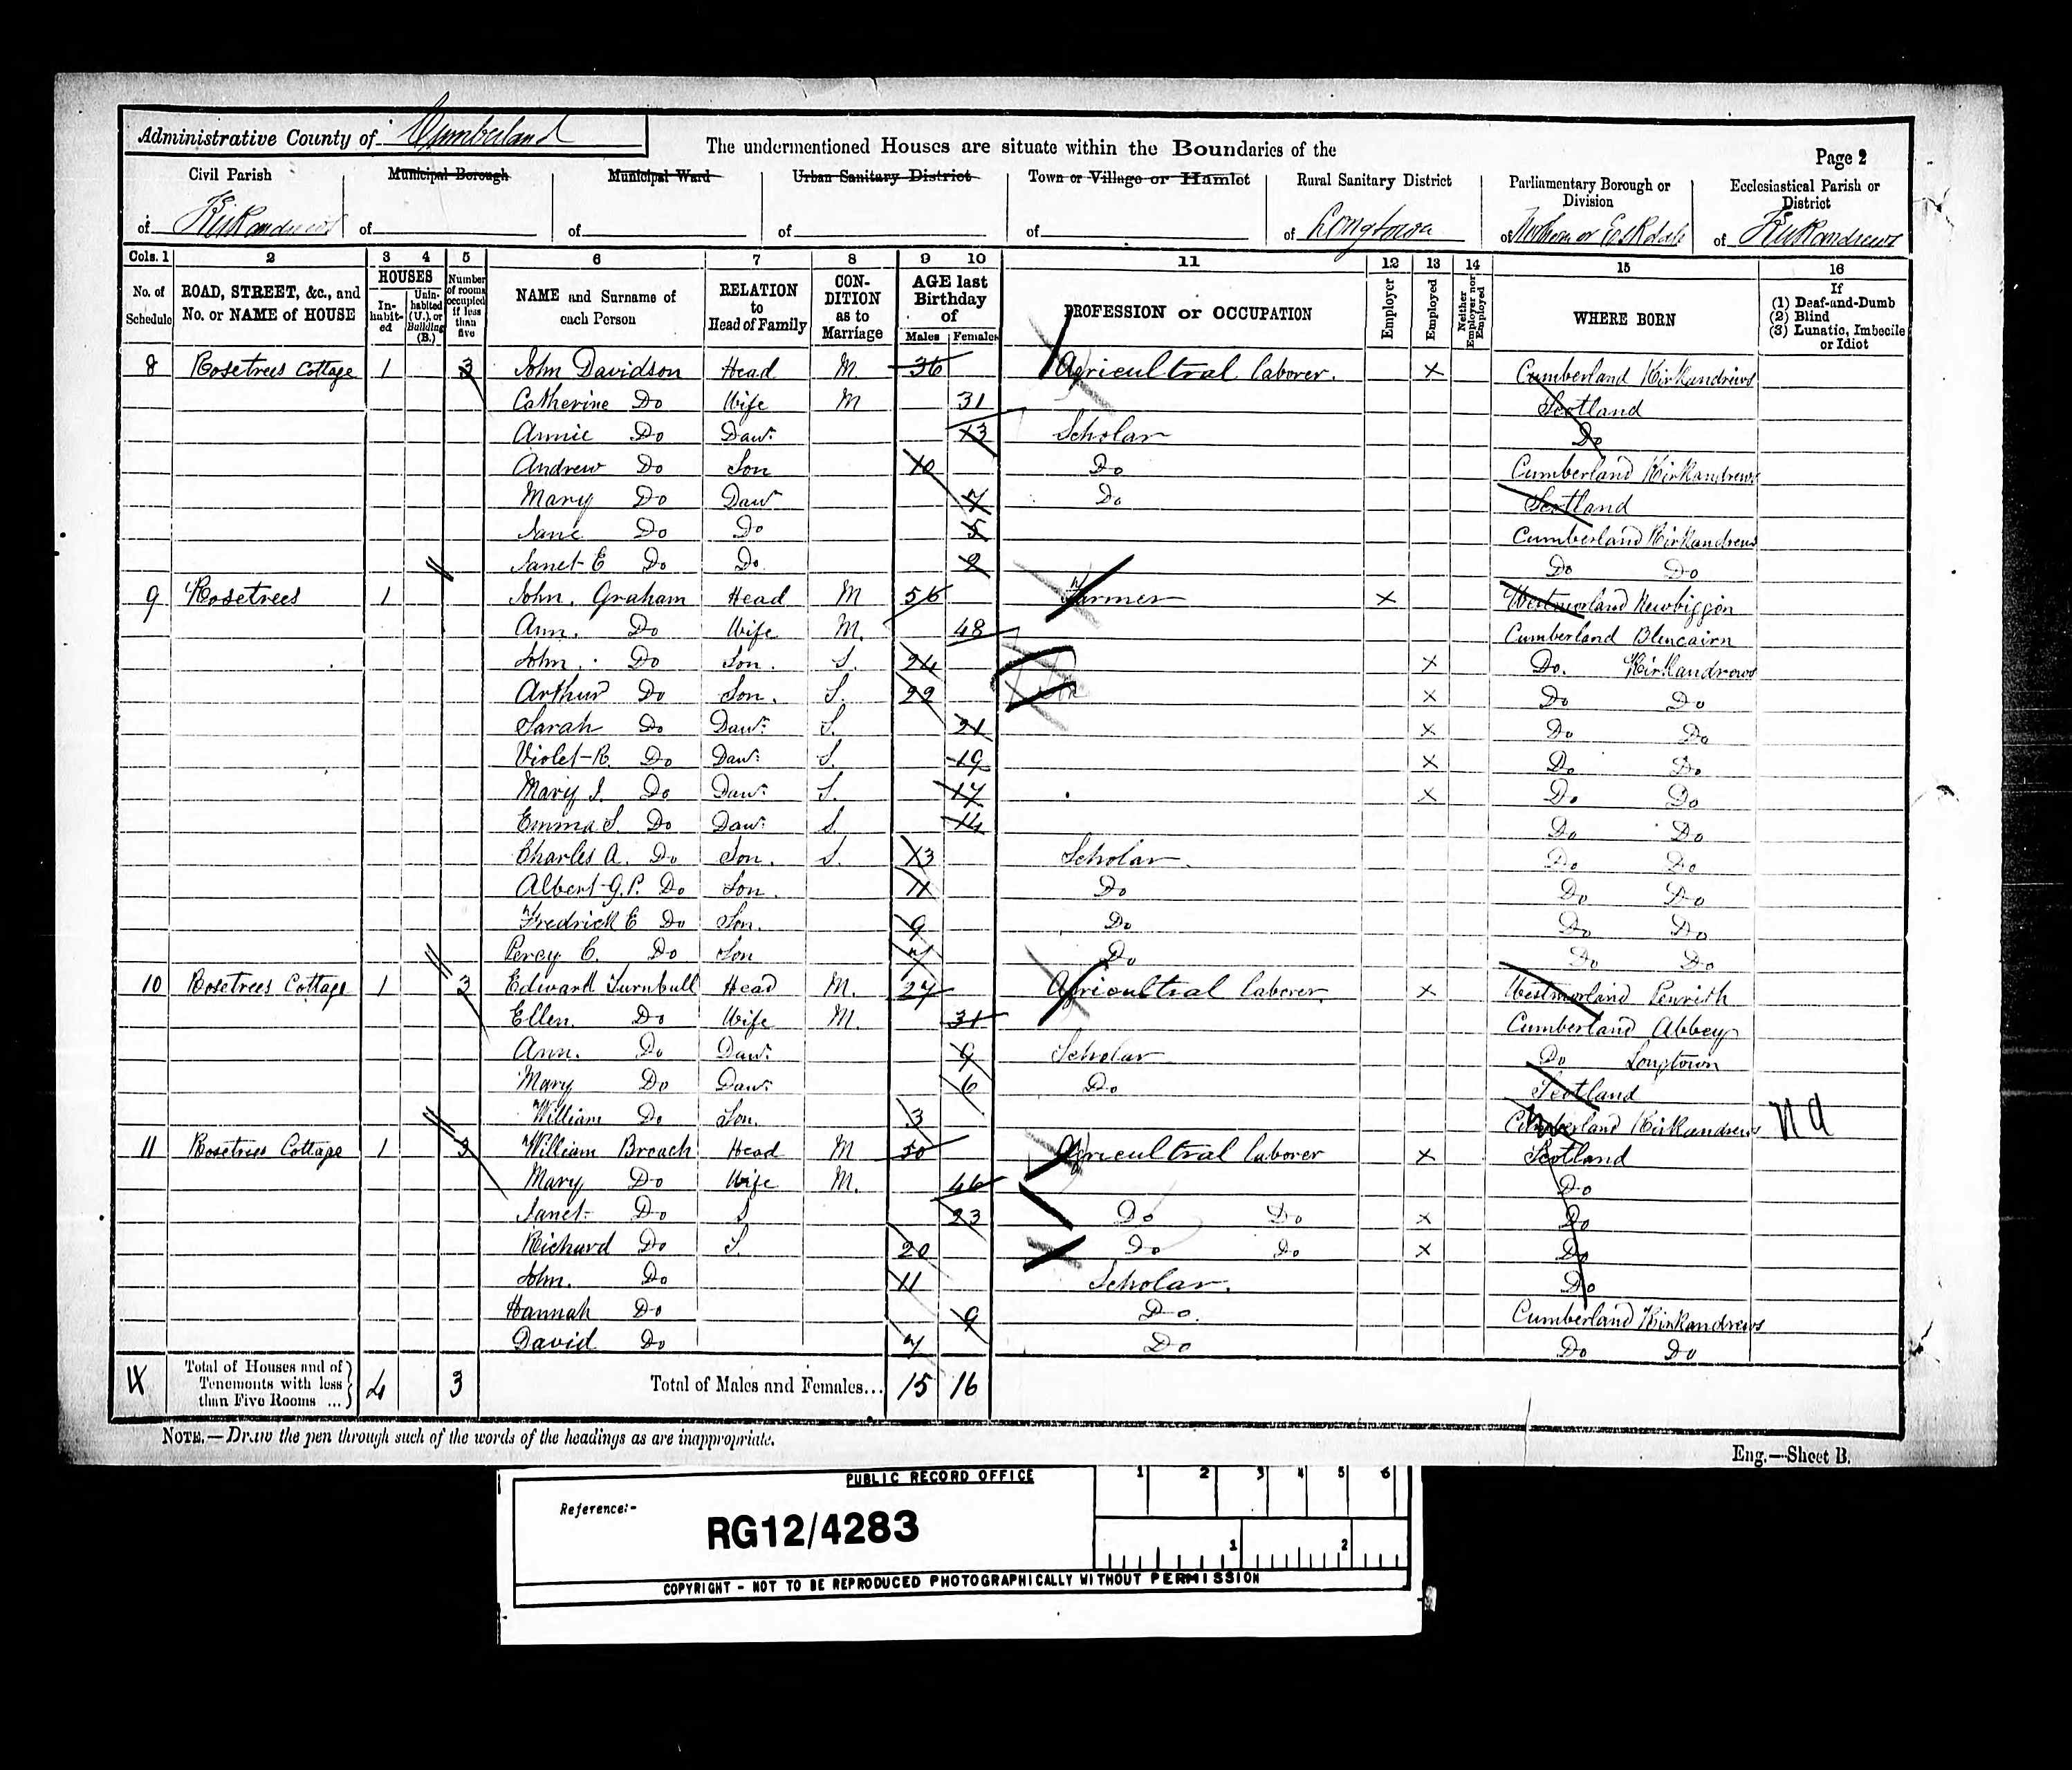 Administrative County of Cumberland
The undermentioned Houses are situate within the Boundaries of the
Page 2
Civil Parish of Kirkandrews
Municipal Borough of
Municipal Ward of
Urban Sanitary District of
Town or Village or Hamlet of
Rural Sanitary District of Longtown
Parliamentary Borough or Division of Northern or Eskdale
Ecclesiastical Parish or District of Kirkandrews
Cols. 1 2 3 4 5 6 7 8 9 10 11 12 13 14 15 16
No. of Schedule
ROAD, STREET, &c., and No. or NAME of HOUSE
HOUSES
In-habit-ed
Unin-habited (U.), or Building (B.)
Number of rooms occupied if less than five
NAME and Surname of each Person
RELATION to Head of Family
CON-DITION as to Marriage
AGE last Birthday of
Males Females
PROFESSION or OCCUPATION
Employer
Employed
Neither Employer nor Employed
WHERE BORN
If (1) Deaf-and-Dumb (2) Blind (3) Lunatic, Imbecile or Idiot
8 Rosetrees Cottage 1 3 John Davidson Head M. 36 Agricultral laborer. X Cumberland Kirkandrews
Catherine Do Wife M 31 Scotland
Annie Do Dawr 13 Scholar Do
Andrew Do Son 10 Do Cumberland Kirkandrews
Mary Do Dawr 7 Do Scotland
Jane Do Do 5 Cumberland Kirkandrews
Janet E Do Do 2 Do Do
9 Rosetrees 1 John. Graham Head M 56 Farmer X Westmorland Newbiggin
Ann. Do Wife M. 48 Cumberland Blencairn
John. Do Son. S. 24 X Do. Kirkandrews
Arthur Do Son. S. 22 X Do Do
Sarah Do Dawr S. 21 X Do Do
Violet R. Do Dawr S. 19 X Do Do
Mary J. Do Dawr S. 17 X Do Do
Emma S. Do Dawr S 14 Do Do
Charles A. Do Son. S. 13 Scholar. Do Do
Albert G.P. Do Son. 11 Do Do Do
Fredrick E Do Son. 9 Do Do Do
Percy C. Do Son 7 Do Do Do
10 Rosetrees Cottage 1 3 Edward Turnbull Head M. 27 Agricultral laborer. X Westmorland Penrith
Ellen. Do Wife M. 31 Cumberland Abbey
Ann. Do Dawr 9 Scholar Do Longtown
Mary Do Dawr 6 Do Scotland
William Do Son. 3 Cumberland Kirkandrews
11 Rosetrees Cottage 1 3 William Broach Head M 50 Agricultral laborer X Scotland
Mary Do Wife M. 46 Do
Janet Do S 23 Do Do X Do
Richard Do S 20 Do Do X Do
John. Do 11 Scholar. Do
Hannah Do 9 Do. Cumberland Kirkandrews
David Do 7 Do Do Do
4 Total of Houses and of Tenements with less than Five Rooms ... 4 3 Total of Males and Females... 15 16
NOTE.—Draw the pen through such of the words of the headings as are inappropriate.
Eng.—Sheet B.
PUBLIC RECORD OFFICE
1 2 3 4 5 6
Reference:-
RG12/4283
1 2
COPYRIGHT - NOT TO BE REPRODUCED PHOTOGRAPHICALLY WITHOUT PERMISSION